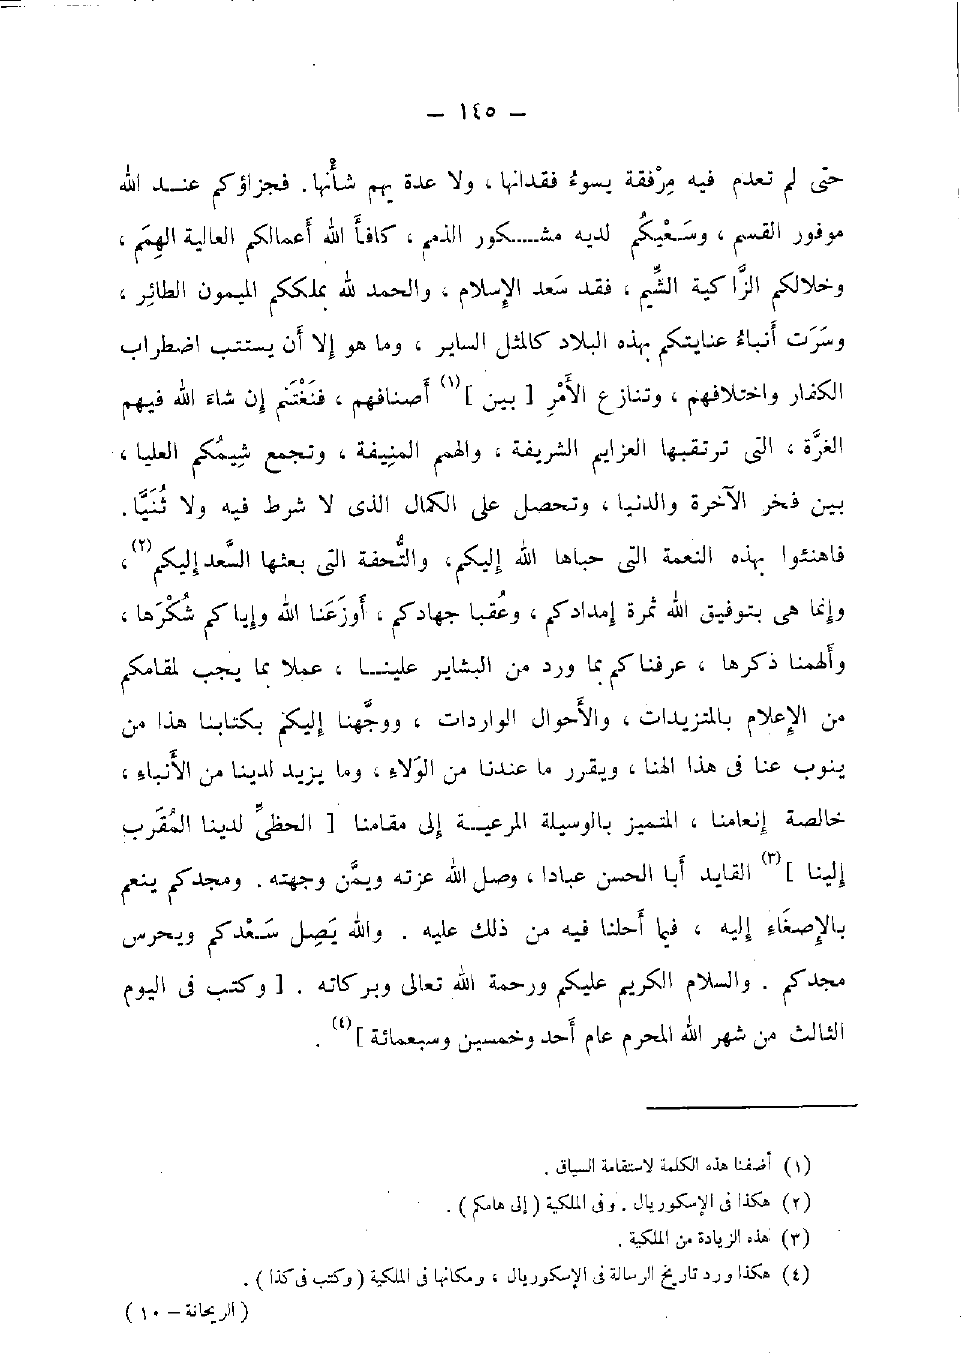 — ١٤٥ —
حتى لم تعدم فيه مِرْفقة يسوءُ فقدانها ، ولا عدة يهم شأْنها . فجزاؤكم عنـــد الله
موفور القسم ، وسَــعْيكُم لديه مشـــكور الذمم ، كافأَ الله أعمالكم العالية الهِمَم ،
وخلالكم الزَّاكية الشِّيم ، فقد سَعد الإسلام ، والحمد لله بملككم الميمون الطائِر ،
وسَرَت أنباءُ عنايتكم بهذه البلاد كالمثل الساير ، وما هو إلا أن يستتب اضطراب
الكفار واختلافهم ، وتنازع الأَمْرِ [ بين ](١) أصنافهم ، فنَغْتَنم إن شاءَ الله فيهم
الغرَّة ، التى ترتقبها العزايم الشريفة ، والهمم المنِيفة ، وتجمع شِيمُكم العليا ،
بين فخر الآخرة والدنيا ، وتحصل على الكمال الذى لا شرط فيه ولا ثُنَيَّا .
فاهنئوا بهذه النعمة التى حباها الله إليكم ، والتُّحفة التى بعثها السَّعد إليكم(٢) ،
وإنما هى بتوفيق الله ثمرة إمدادكم ، وعُقبا جهادكم ، أَوزَعَنا الله وإياكم شُكْرَها ،
وأَلهمنا ذكرها ، عرفناكم بما ورد من البشاير علينــا ، عملا بما يجب لمقامكم
من الإعلام بالمتزيدات ، والأَحوال الواردات ، ووجَّهنا إليكم بكتابنا هذا من
ينوب عنا فى هذا الهنا ، ويقرر ما عندنا من الوَلاءِ ، وما يزيد لدينا من الأَنباء ،
خالصة إنعامنا ، المتميز بالوسيلة المرعيــة إلى مقامنا [ الحظىِّ لدينا المُقَرب
إلينا ](٣) القايد أبا الحسن عبادا ، وصل الله عزته ويمَّن وجهته . ومجدكم ينعم
بالإِصغَاءِ إليه ، فيما أَحلنا فيه من ذلك عليه . والله يَصِل سَــعْدكم ويحرس
مجدكم . والسلام الكريم عليكم ورحمة الله تعالى وبركاته . [ وكتب فى اليوم
الثالث من شهر الله المحرم عام أحد وخمسين وسبعمائة ](٤) .
(١) أضفنا هذه الكلمة لاستقامة السياق .
(٢) هكذا فى الإسكوريال . وفى الملكية ( إلى هامكم ) .
(٣) هذه الزيادة من الملكية .
(٤) هكذا ورد تاريخ الرسالة فى الإسكوريال ، ومكانها فى الملكية ( وكتب فى كذا ) .
( الريحانة – ١٠ )